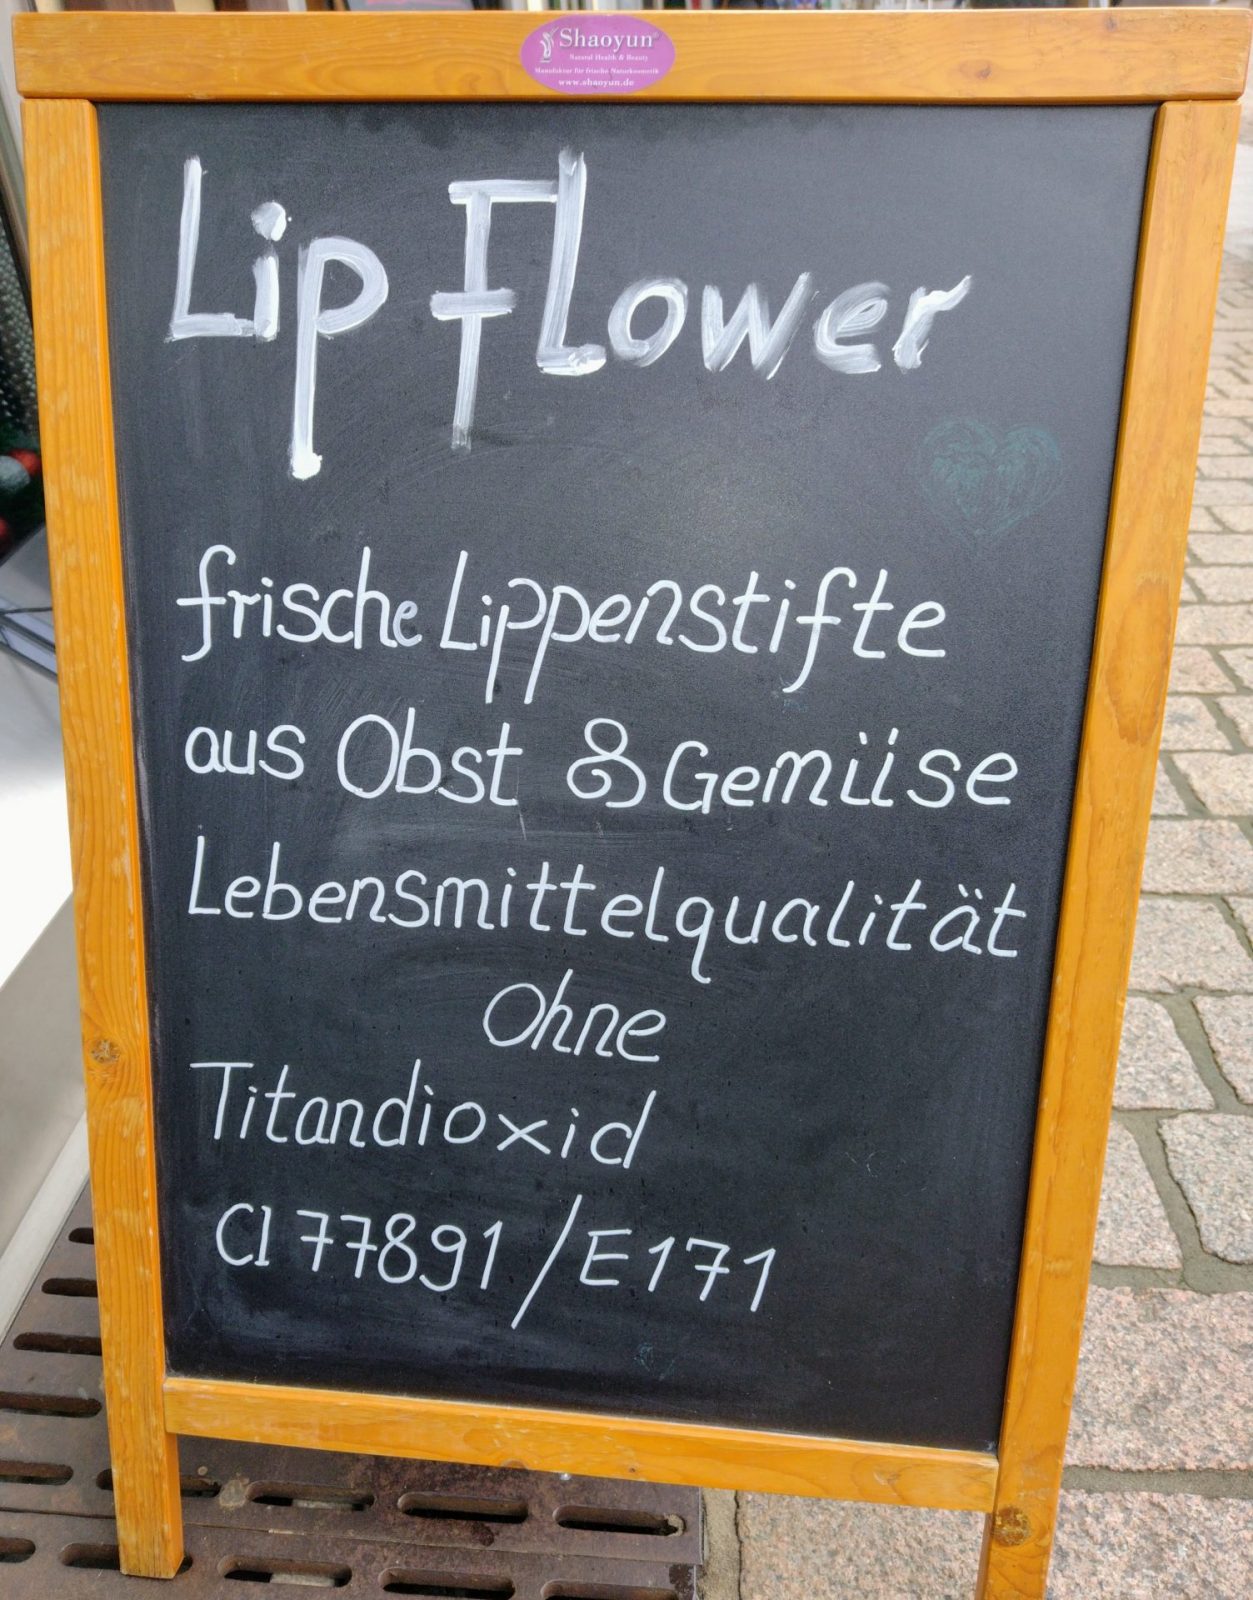 Shaoyun®
Natural Health & Beauty
Manufaktur für frische Naturkosmetik
www.shaoyun.de
Lip Flower
frische Lippenstifte
aus Obst & Gemüse
Lebensmittelqualität
Ohne
Titandioxid
CI 77891 / E171